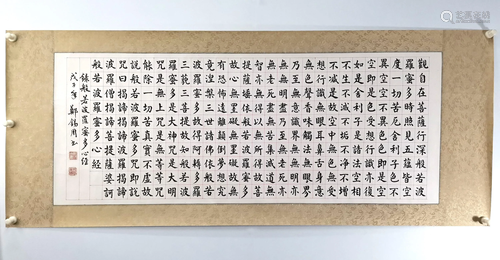 觀自在菩薩行深般若波
羅蜜多時照見五蘊皆空
度一切苦厄舍利子色不
異空空不異色色即是空
空即是色受想行識亦復
如是舍利子是諸法空相
不生不滅不垢不淨不增
不減是故空中無色無受
想行識無眼耳鼻舌身意
無色聲香味觸法無眼界
乃至無意識界無無明亦
無無明盡乃至無老死亦
無老死盡無苦集滅道無
智亦無得以無所得故菩
提薩埵依般若波羅蜜多
故心無罣礙無罣礙故無
有恐怖遠離顛倒夢想究
竟涅槃三世諸佛依般若
波羅蜜多故得阿耨多羅
三藐三菩提故知般若波
羅蜜多是大神咒是大明
咒是無上咒是無等等咒
能除一切苦真實不虛故
說般若波羅蜜多咒即說
咒曰揭諦揭諦波羅揭諦
波羅僧揭諦菩提薩婆訶
般若波羅蜜多心經
錄般若波羅蜜多心經
戊子年鄭錫周書